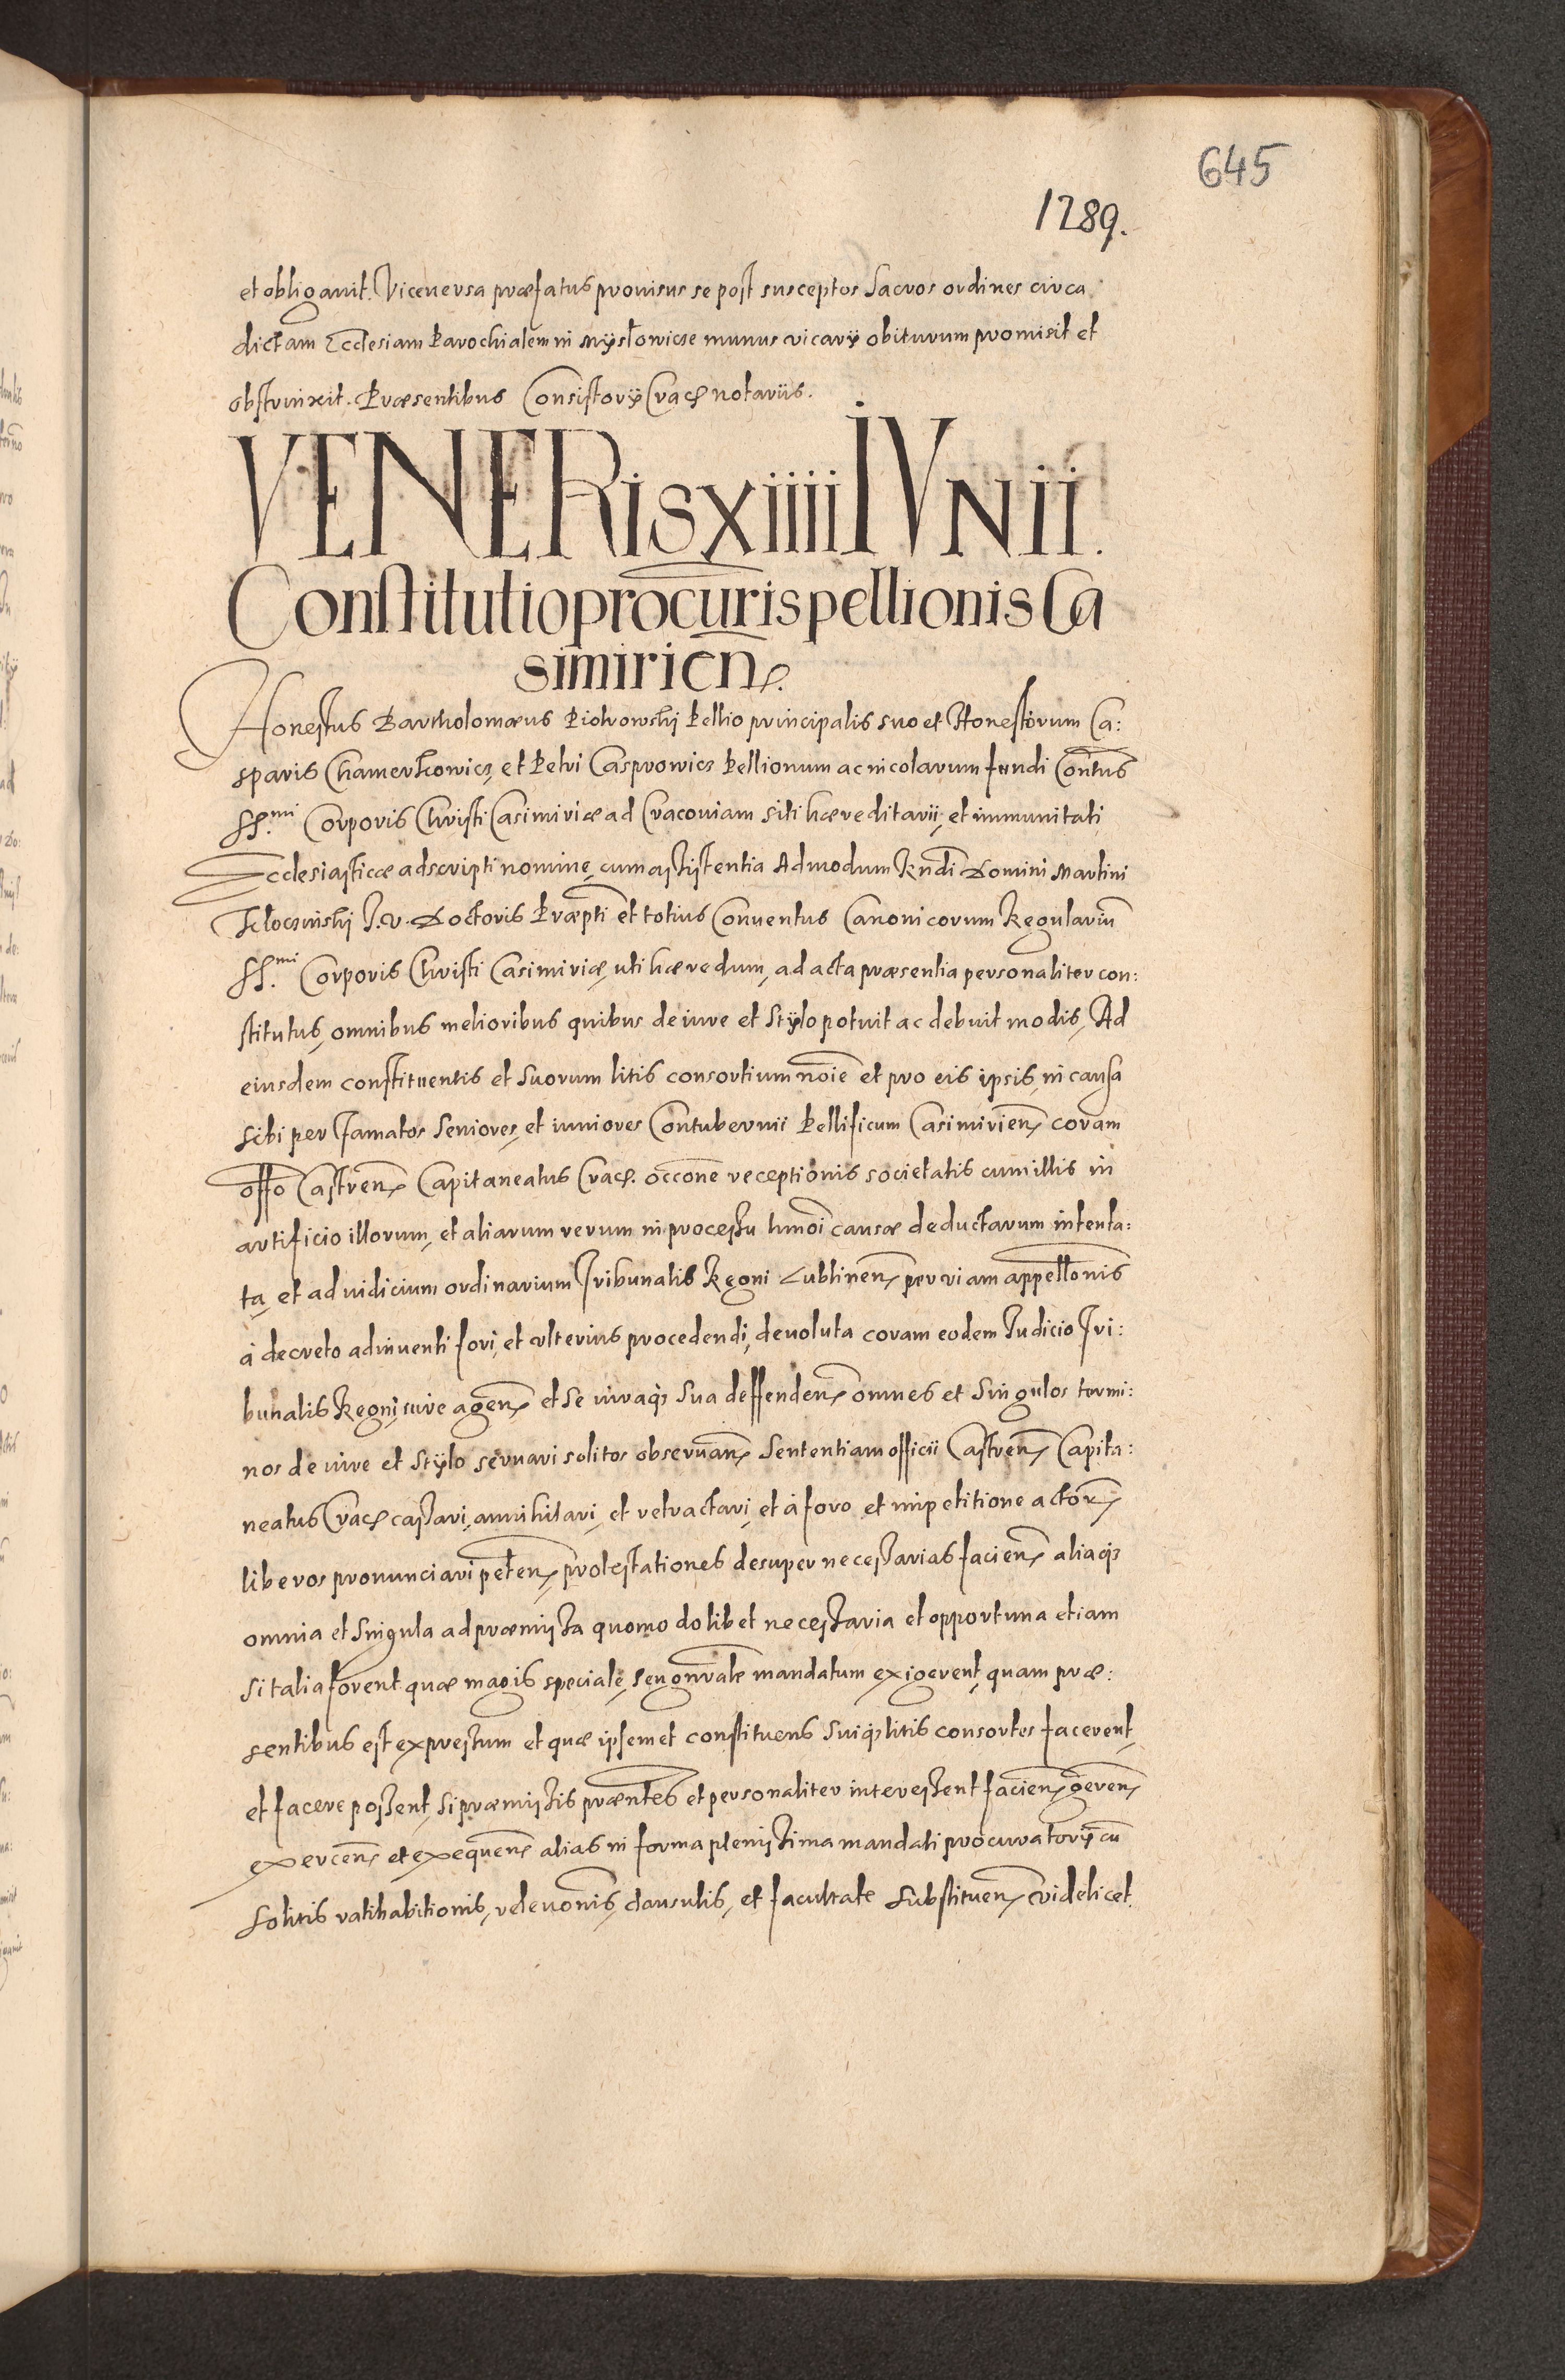 645
1289.
et obligauit. Viceuersa præfatus prouisus se post susceptos sacros ordines circa
dictam Ecclesiam Parochialem in Mysłowice munus vicarÿ obiturum promisit et
obstrinxit. Præsentibus ConsistorÿCrac notariis.
VENERIS XIIII IVNII.
Constitutio procuris pellionis Ca
simirien.
Honestus Bartholomæus Piotrowskj Pellio principalis suo et Honestorum Ca:
sparis Chamerkowicz, et Petri Casprowicz Pellionum ac incolarum fundi Contus
SS.mi Corporis Christi Casimiriæ ad Cracouiam siti hæreditarii, et immunitati
Ecclesiasticæ adscripti nomine, cum assistentia Admodum Rndi Domini Martini
Kłoczinskj J. V. Doctoris Præpti et totius Conuentus Canonicorum Regulariu
SS.mi Corporis Christi Casimiriæ, uti hæredum, ad acta præsentia personaliter con:
stitutus, omnibus melioribus quibus de iure et stÿlo potuit ac debuit modis, Ad
eiusdem constituentis et suorum litis consortium noie et pro eis ipsis, in causa
sibi per famatos seniores, et iuniores Contubernii Pellificum Casimirien coram
offo Castren Capitaneatus Crac. occone receptionis societatis cum illis in
artificio illorum, et aliarum rerum in processu hmoi causæ deductarum intenta:
ta, et ad iudicium ordinarium Tribunalis Regni Lublinen per viam appellonis
à decreto adinuenti fori, et vlterius procedendi, deuoluta coram eodem Iudicio Tri:
bunalis Regni, iure agen et se iuraq; sua deffenden omnes et singulos termi:
nos de iure et stÿlo seruari solitos obseruan sententiam officii Castren Capita:
neatus Crac cassari, annihilari, et retractari, et à foro et impetitione actor
liberos pronunciari peten, protestationes desuper necessarias facien aliaq;
omnia et singula ad præmissa quomodolibet necessaria et opportuna etiam
si talia forent quæ magis speciale, seu gnrale mandatum exigerent, quam præ:
sentibus est expressum et quæ ipsemet constituens suiq; litis consortes facerent,
et facere possent, si præmissis præntes et personaliter interessent facien, geren,
exercen et exequen alias in forma plenissima mandati procuratorÿ cu
solitis ratihabitionis, releuonis, clausulis, et facultate substituen videlicet.